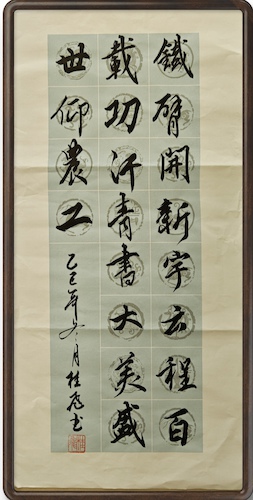 鐵臂開新宇云程百
載功汗青書大美盛
世仰農工
乙巳年 月桂 书